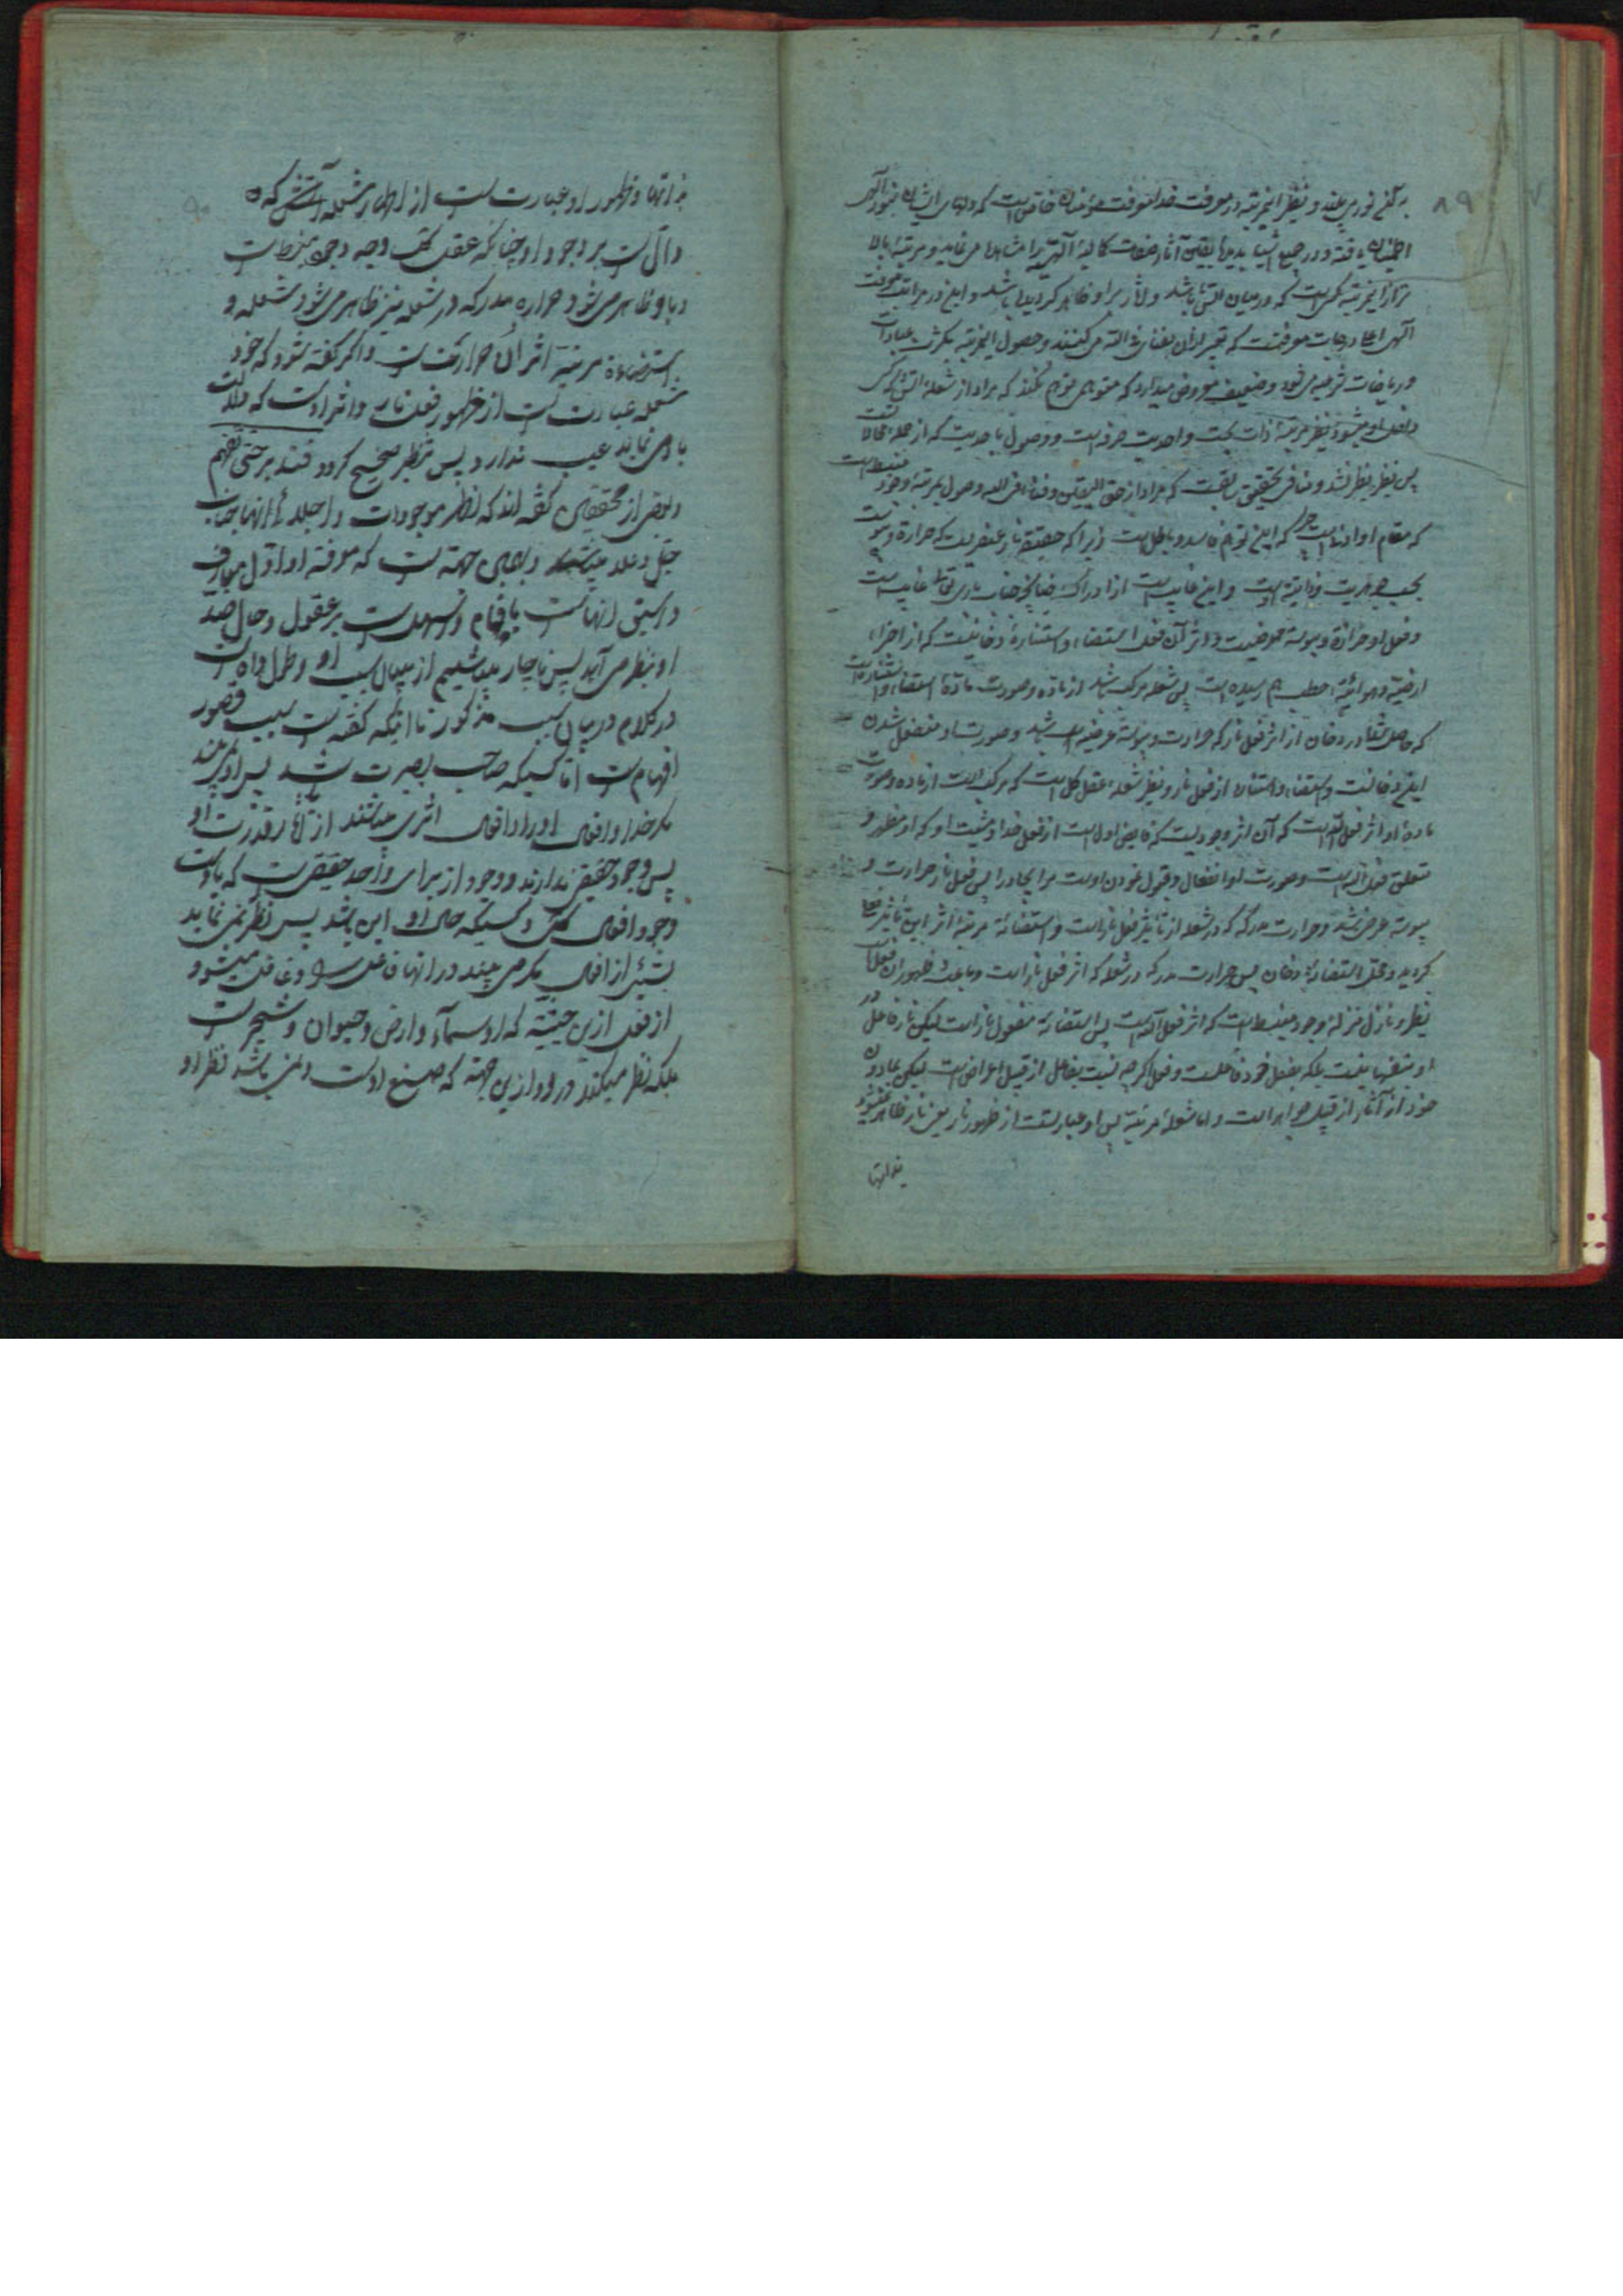 ۸۹
و نظیر این مرتبه در معرفت خدا معرفت مؤمنان خالص است که دلهای ایشان بنور الهی
اطمینان یافته و در جمیع اشیا بدیدهٔ یقین آثار صفات کمالیهٔ الهیه را مشاهده می نمایند و مرتبهٔ بالا
تر از این مرتبه کسی است که در میان آتش باشد و آثار بر او ظاهر گردیده باشد و این در مراتب معرفت
الهی اعلا درجات معرفتست که تعبیر از آن بفنای فی الله می کنند و حصول این مرتبه بکثرت عبادات
و ریاضات شرعیه می شود و ضعیف معروض میدارد که متوهمی توهم نکند که مراد از شعله آتش
مرتبهٔ ذات بحت و احدیت صرفه است و وصول باحدیت که از جمله محالات
پس نظیر نظیر نشد و منافی تحقیق سابقست که مراد از حق الیقین و فناء فی الله وصول بمرتبهٔ وجود منبسط است
که مقام او ادنی است که این توهم فاسد و باطل است زیرا که حقیقة نار عنصریست که حرارة و یبوست
بحسب جوهریت و ذاتیة اوست و این غایب است از ادراک چنانکه جناب باری تعالی غایب است
و فعل او حرارة و یبوسة عرضیست و اثر آن فعل استضاء و استنارهٔ دخانیست که از اجزاء
ارضیه و هوائیه حطب بهم رسیده است پس شعله مرکب باشد از ماده و صورت مادهٔ استضاء و استناره است
که حاصل شد در دخان از اثر فعل نار که حرارت و یبوسة عرضیه باشد و صورت او منفعل شدن
این دخانست و استضاء و استناره از فعل نار و نظیر شعله عقل کل است که مرکب است از ماده و صورت
مادهٔ او اثر فعل الله است که آن اثر وجودیست که فایض اول است از فعل خدا و مشیت او که او مظهر و
متعلق فعل الله است و صورت او انفعال و قبول نمودن اوست مر ایجاد را پس فعل نار حرارت و
یبوسة عرضی شد و حرارت مدرکه که در شعله از تأثیر فعل نار است و استضائهٔ مرتبهٔ اثر این تأثیر
گردید و محل استضائه دخان پس حرارت مدرکه در شعله که اثر فعل نار است و باعث ظهور آن
نظیر و نازل منزلهٔ وجود منبسط است که اثر فعل الله است پس استضائه مفعول نار است لیکن نار فاعل
او بنفسها نیست بلکه بفعل خود فاعل است و فعل اگر چه نسبت بفاعل از قبیل اعراض است لیکن بمادون
خود از آثار از قبیل جواهر است و اما شعلهٔ مرئیه پس او عبارتست از ظهور نار یعنی نار ظاهر نمیشود
بذاتها
۹۰
بذاتها و ظهور او عبارت است از اظهار شعله آتش که
دال است بر وجود او چنانکه عقل کل وجه وجود منبسط است
و باو ظاهر می شود حراره مدرکه در شعله نیز ظاهر می شود شعله و
استضاءه مرئیه اثر آن حرارتست و اگر گفته شود که خود
شعله عبارت است از ظهور فعل نار و اثر اوست که دلالت
باو می نماید عیب ندارد پس تنظیر صحیح گردد فتدبر حتی تفهم
و بعضی از محققین گفته اند که اظهر موجودات و اجلای آنها جناب
جل و علا میباشد و باین جهة است که معرفة او اول معارف
و اسبق آنهاست بافهام و اسهل است بر عقول و حال ضد
او بنظر می آید پس ناچار میباشیم از بیان سبب او و طول داده است
در کلام در بیان سبب مذکور تا اینکه گفته است سبب قصور
افهام است اما کسیکه صاحب بصیرت باشد پس او نمی بیند
مگر خدا و افعال او را و افعال اثری میباشند از آثار قدرت او
پس وجود حقیقی ندارند و وجود از برای واحد حقیقی است که باوست
وجود افعال کل و کسیکه حال او این باشد پس نظر نمی نماید
بشئ از افعال مگر می بیند در آنها فاعل را و غافل میشود
از فعل ازین حیثیة که او سماء و ارض و حیوان و شجر است
بلکه نظر میکند در او ازین جهة که صنع اوست و نمی باشد نظر او